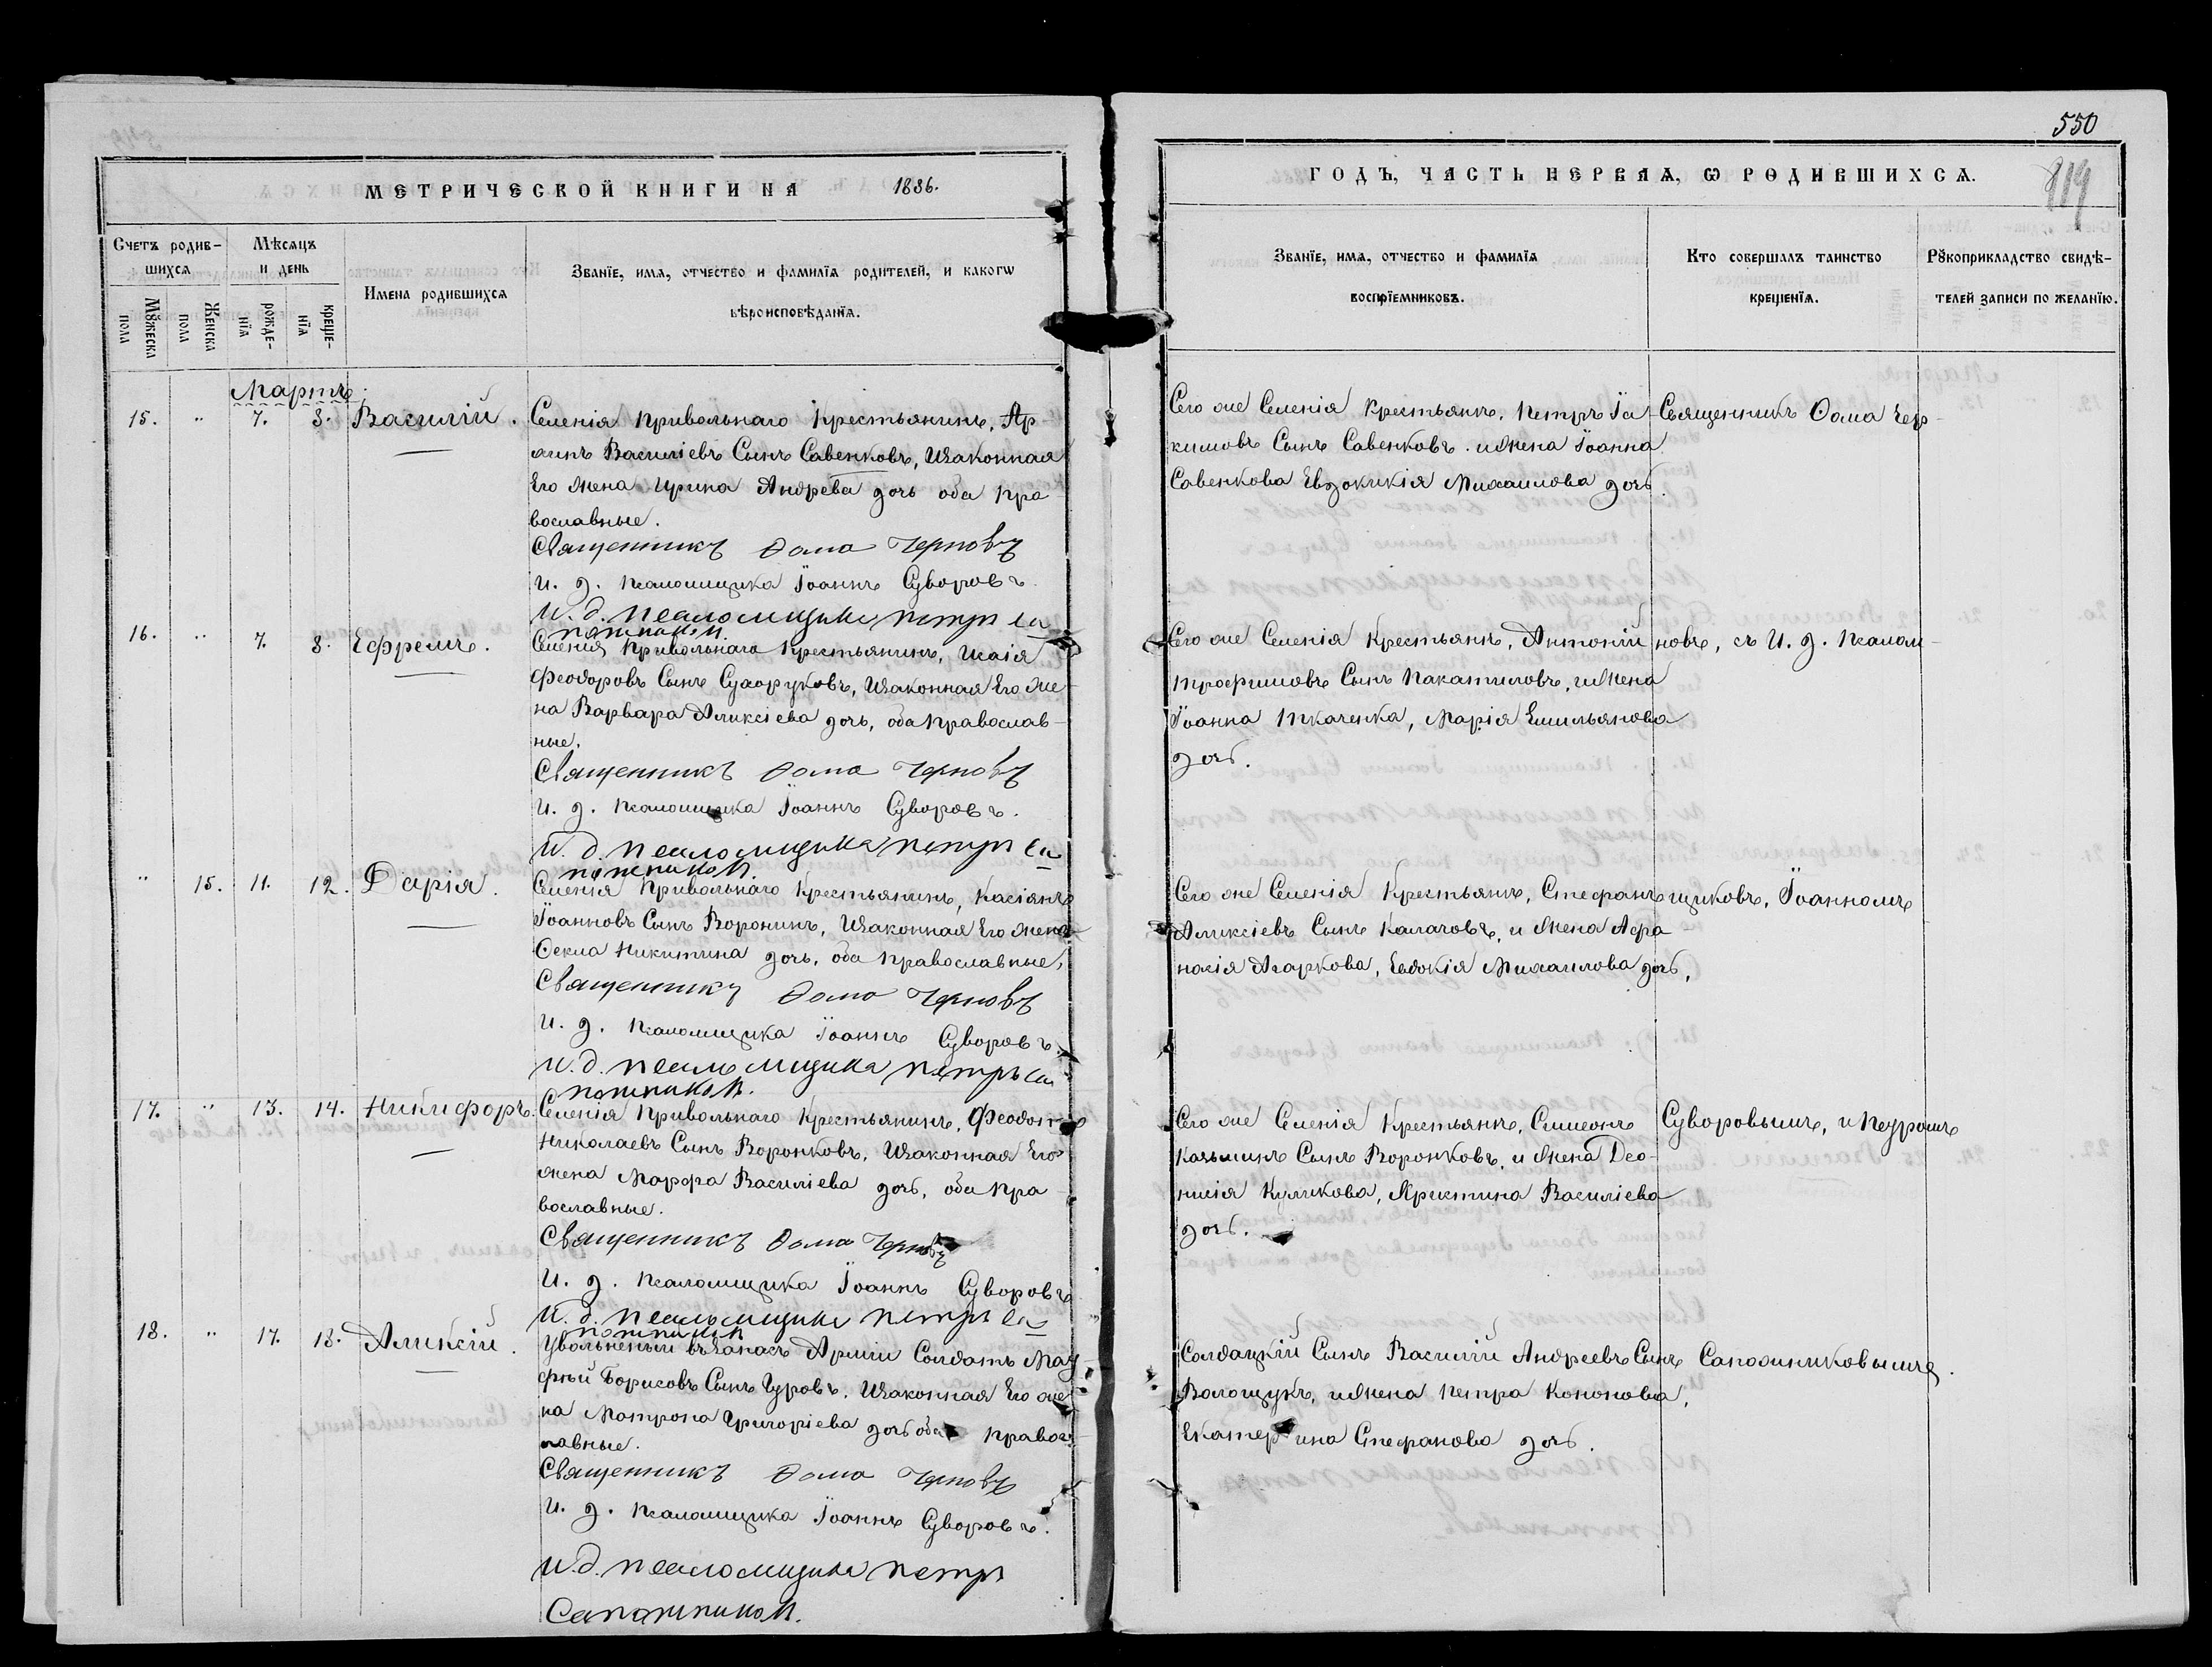 МЕТРИЧЕСКОЙ КНИГИ НА 1886.
Счетъ родив-
шихся
Мѣсяцъ
и день
Имена родившихся
Званїе, имя, отчество и фамилїя родителей, и какогѡ
вѣроисповѣданїя.
Мꙋжеска
пола
Женска
пола
рожде-
нїя
креще-
нїя
Мартъ
15. " 7. 8. Василій.
Селенія Привольнаго Крестьянинъ,
Василіевъ Сынъ Савенковъ, Изаконная
Его Жена Ирина Андрева дочь оба пра
вославные.
Священникъ Ѳома Черновъ
И. д. Псаломщика Іоаннъ Суворовъ
И. д. псаломщика петръ са
пожников
16. " 7. 8. Ефремъ.
Селения Привольнаго Крестьянинъ, Исаія
Феодоровъ Сынъ Сухоруковъ, Изаконная Его Же
на Варвара Аликсіева дочь, оба православ-
ные.
Священникъ Ѳома Черновъ
И. д. Псаломщика Іоаннъ Суворовъ.
И. д. псаломщика петръ са
пожников
" 15. 11. 12. Дарія.
Селенія Привольнаго Крестьянинъ, Касіянъ
Іоанновъ Сынъ Воронинъ, Изаконная Его Жена
Ѳекла Никитина дочь, оба православные,
Священникъ Ѳома Черновъ
И. д. Псаломщика Іоаннъ Суворовъ.
И. д. псаломщика петръ са
пожников.
17. " 13. 14. Никифоръ.
Селенія Привольнаго Крестьянинъ, Феодотъ
Николаевъ Сынъ Воронковъ, Изаконная Его
жена Марфа Василіева дочь, оба пра
вославные.
Священникъ Ѳома Черновъ
И. д. Псаломщика Іоаннъ Суворовъ
И. д. псаломщика петръ са
пожников
18. " 17. 18. Аликсій.
Увольненый въ Запасъ Арміи Солдатъ
Борисовъ Сынъ Гуровъ, Изаконная Его же
на Матрона Григоріева дочь оба правос
лавные.
Священникъ Ѳома Черновъ
И. д. Псаломщика Іоаннъ Суворовъ.
И. д. псаломщика петръ
Сапожников.
550
819
ГОДЪ, ЧАСТЬ ПЕРВАЯ, Ѡ РОДИВШИХСЯ.
Званїе, имя, отчество и фамилїя
воспрїемниковъ.
Кто совершалъ таинство
крещенїя.
Рꙋкоприкладство свидѣ-
телей записи по желанїю.
Сего же Селенія Крестьянъ, Петръ Іа
кимовъ Сынъ Савенковъ. и Жена Іоанна
Савенкова Евдокикія Михаилова дочь.
Священникъ Ѳома Чер-
Сего же Селенія Крестьянъ, Антоній
Трофимовъ Сынъ Пакатиловъ, и Жена
Іоанна Ткаченка, Марія Емильянова
дочь.
новъ, съ И. д. Псалом-
Сего же Селенія Крестьянъ, Стефанъ
Аликсіевъ Сынъ Калачовъ, и Жена Афа-
насія Агаркова, Евдокія Михаилова дочь,
щиковъ, Іоанномъ
Сего же Селенія Крестьянъ, Симеонъ
Казьминъ Сынъ Воронковъ, и Жена Део-
нисія Куликова, Христина Василіева
дочь.
Суворовымъ, и Петромъ
Солдацкій Сынъ Василій Андреевъ Сынъ
Волощукъ, и Жена Петра Кононова,
Екатерина Стефанова дочь.
Сапожниковымъ.